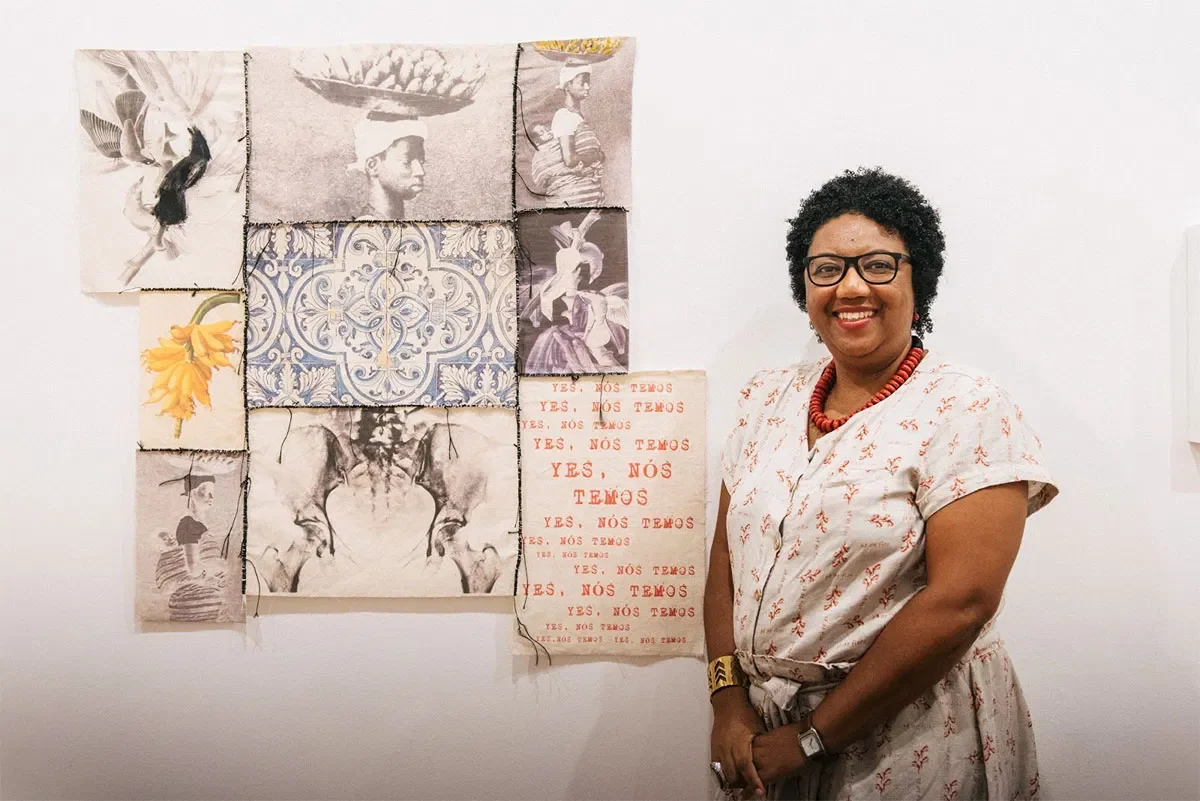 YES, NÓS TEMOS
YES, NÓS TEMOS
YES, NÓS TEMOS
YES, NÓS TEMOS
YES, NÓS
TEMOS
YES, NÓS TEMOS
YES, NÓS TEMOS
YES, NÓS TEMOS
YES, NÓS TEMOS
YES, NÓS TEMOS
YES, NÓS TEMOS
YES, NÓS TEMOS
YES, NOS TEMOS YES, NÓS TEMOS